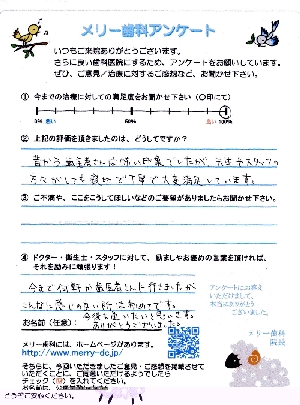 メリー歯科アンケート
いつもご来院ありがとうございます。
さらに良い歯科医院にするため、アンケートをお願いしています。
ぜひ、ご意見／治療に対するご感想など、お聞かせ下さい。
① 今までの治療に対しての満足度をお聞かせ下さい（〇印にて）
0% 悪い 50% 良い 100%
② 上記の評価を頂きましたのは、どうしてですか？
昔から歯医者さんは怖い印象でしたが、先生やスタッフの
方々がとても親切で丁寧で大変満足しています。
③ ご不満や、ここをこうしてほしいなどのご要望がありましたらお聞かせ下さい。
④ ドクター・衛生士・スタッフに対して、励ましやお褒めの言葉を頂ければ、
それを励みに頑張ります！
今まで何軒か歯医者さんへ行きましたが
こんなに感じの良い所は初めてです。
今後も通いたいと思います。
ありがとうございました。
お名前（任意）：
アンケートにお答え
いただけまして、
本当にありがとう
ございました。
メリー歯科
院長
メリー歯科には、ホームページがあります。
http://www.merry-dc.jp/
そちらに、今回いただきましたご意見・ご感想を掲載させて
いただくことに、ご同意いただけるようでしたら
チェック（☑）を入れてください。